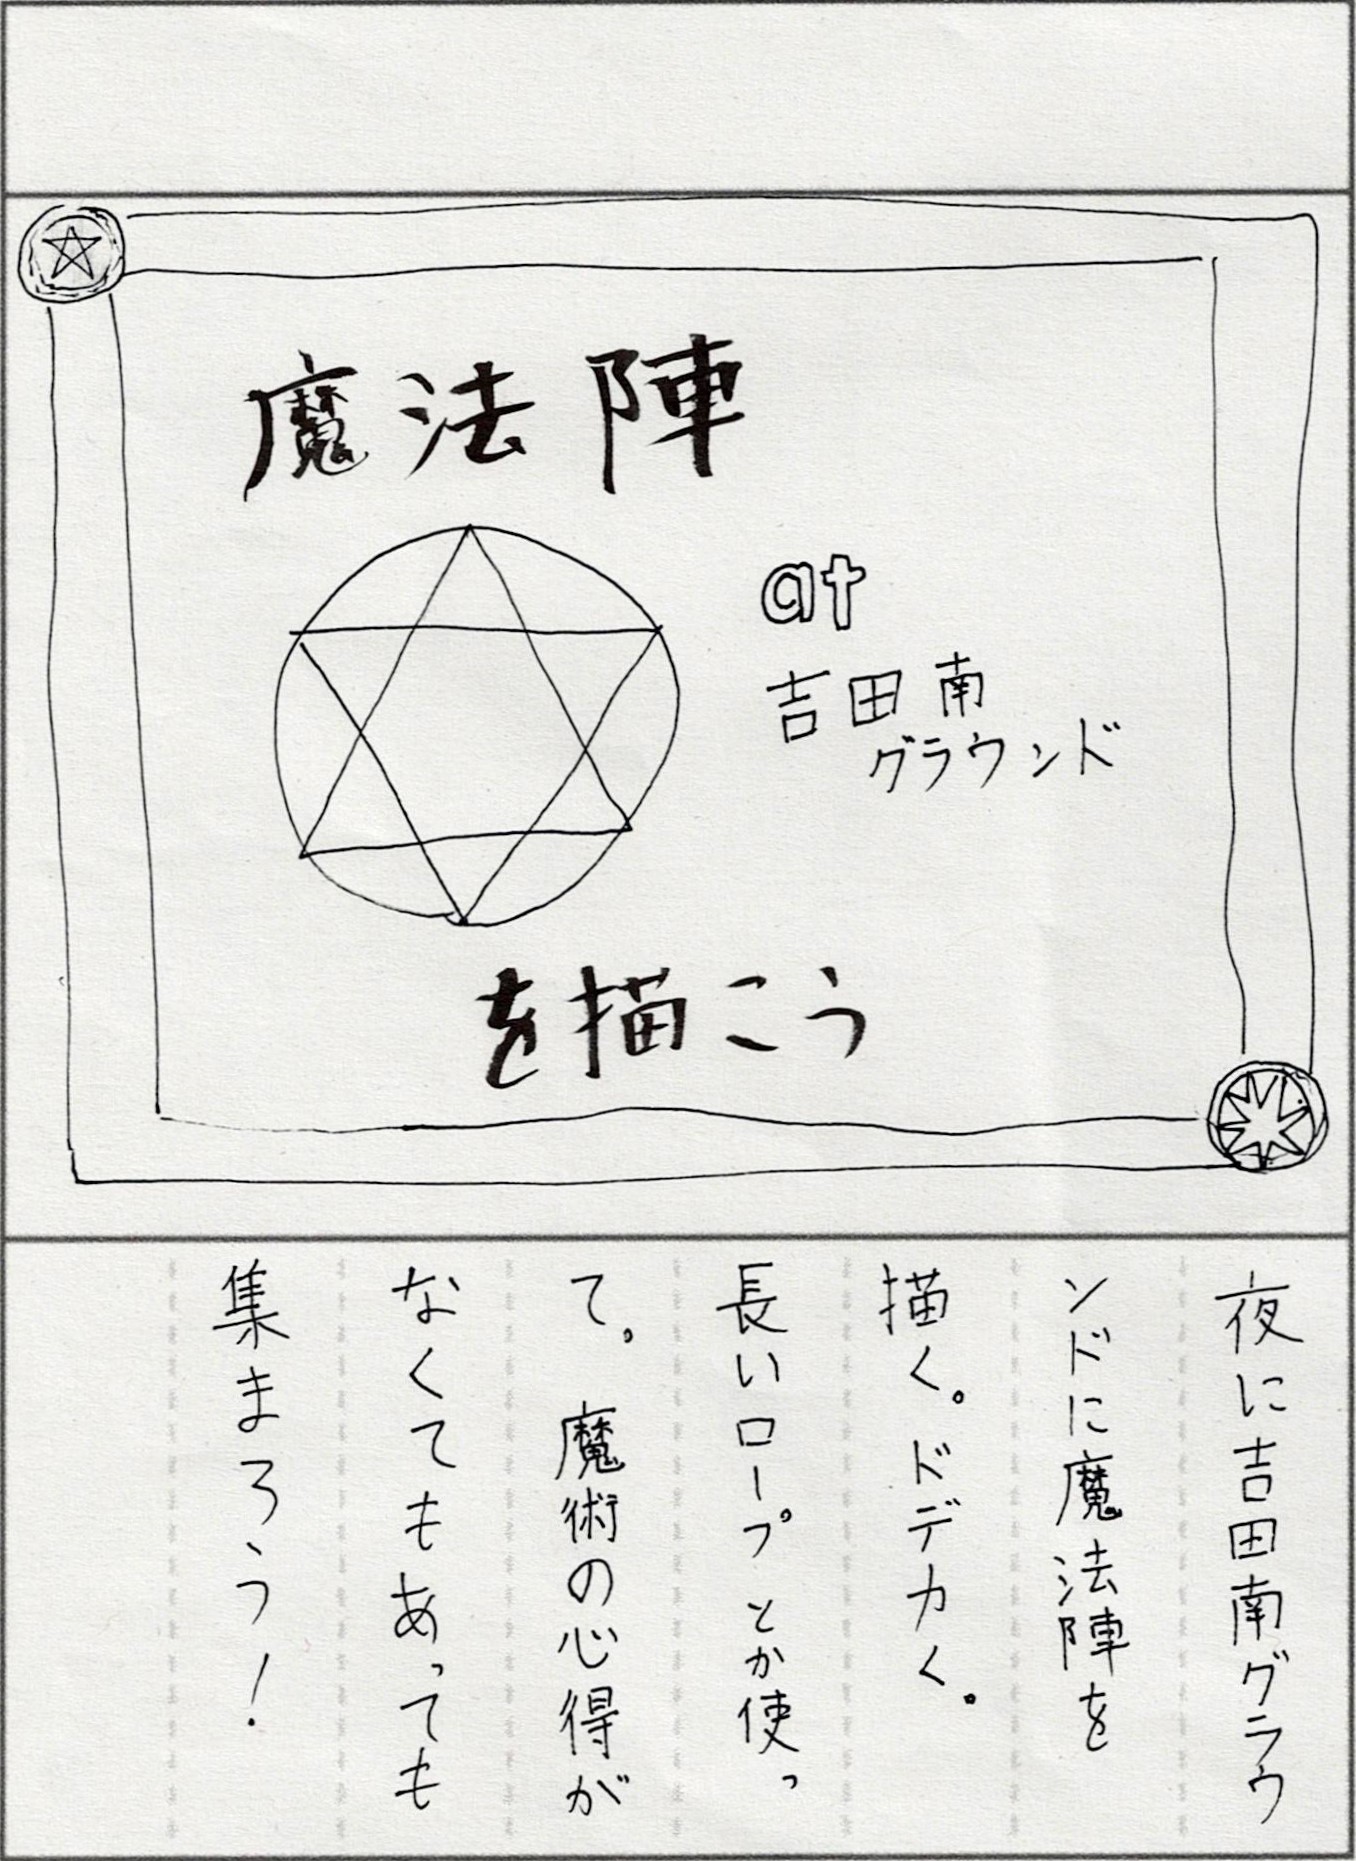 魔法陣
at
吉田南
グラウンド
を描こう
夜に吉田南グラウ
ンドに魔法陣を
描く。ドデカく。
長いロープとか使っ
て。魔術の心得が
なくてもあっても
集まろう!